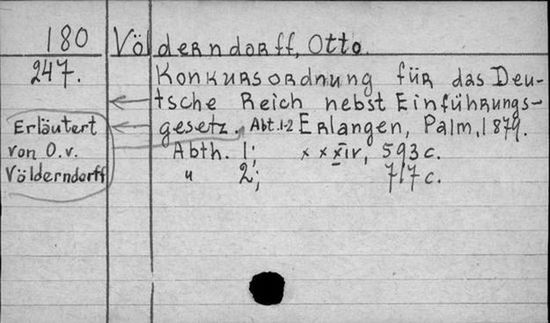 180 Völderndorff, Otto.
247. Konkursordnung für das Deu-
tsche Reich nebst Einführungs-
gesetz. Abt. 1-2 Erlangen, Palm, 1879.
Abth. 1; xxxiv, 593 c.
" 2; 717 c.
Erläutert
von O. v.
Völderndorff